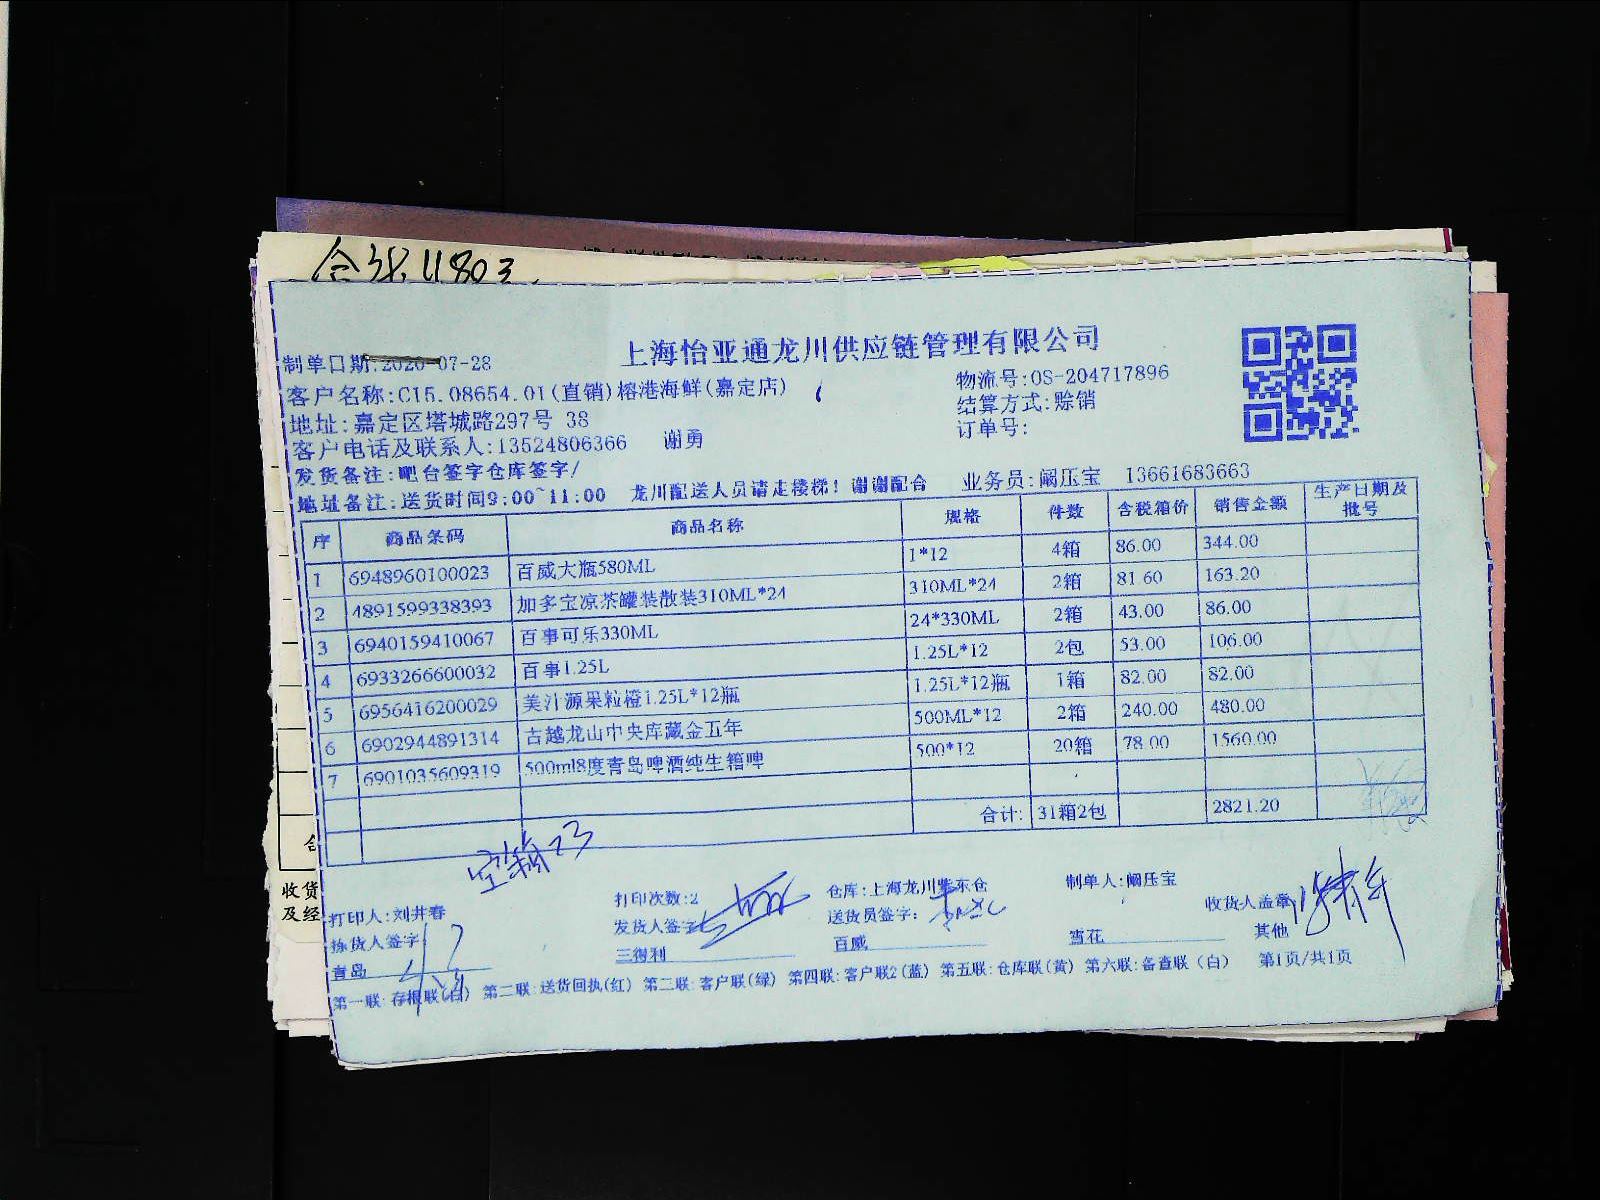 上海怡亚通龙川供应链管理有限公司
制单日期:2020-07-28
客户名称:CI5.08654.01(直销)榕港海鲜(嘉定店)
物流号:OS-204717896
地址:嘉定区塔城路297号 38
结算方式:赊销
客户电话及联系人:13524806366 谢勇
订单号:
发货备注:吧台签字仓库签字/
地址备注:送货时间9:00~11:00 龙川配送人员请走楼梯!谢谢配合 业务员:阚压宝 13661683663
序 商品条码 商品名称 规格 件数 含税箱价 销售金额 生产日期及批号
1 6948960100023 百威大瓶580ML 1*12 4箱 86.00 344.00
2 4891599338393 加多宝凉茶罐装散装310ML*24 310ML*24 2箱 81.60 163.20
3 6940159410067 百事可乐330ML 24*330ML 2箱 43.00 86.00
4 6933266600032 百事1.25L 1.25L*12 2包 53.00 106.00
5 6956416200029 美汁源果粒橙1.25L*12瓶 1.25L*12瓶 1箱 82.00 82.00
6 6902944891314 古越龙山中央库藏金五年 500ML*12 2箱 240.00 480.00
7 6901035609319 500ml8度青岛啤酒纯生箱啤 500*12 20箱 78.00 1560.00
合计: 31箱2包 2821.20
空箱23
打印人:刘井春 打印次数:2 仓库:上海龙川 仓 制单人:阚压宝
拣货人签字 发货人签字 送货员签字: 收货人盖章
青岛 三得利 百威 雪花 其他
第一联:存根联(白) 第二联:送货回执(红) 第二联:客户联(绿) 第四联:客户联2(蓝) 第五联:仓库联(黄) 第六联:备查联(白) 第1页/共1页
收货
及经